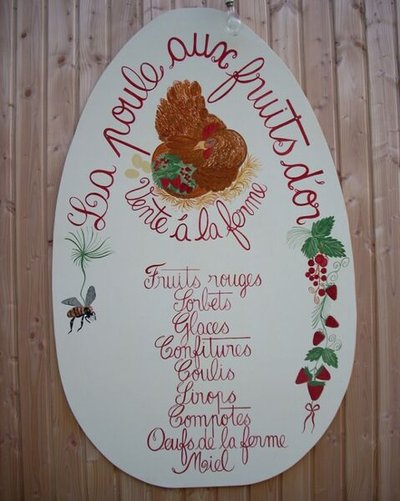 La poule aux fruits d'or
Vente à la ferme
Fruits rouges
Sorbets
Glaces
Confitures
Coulis
Sirops
Compotes
Oeufs de la ferme
Miel